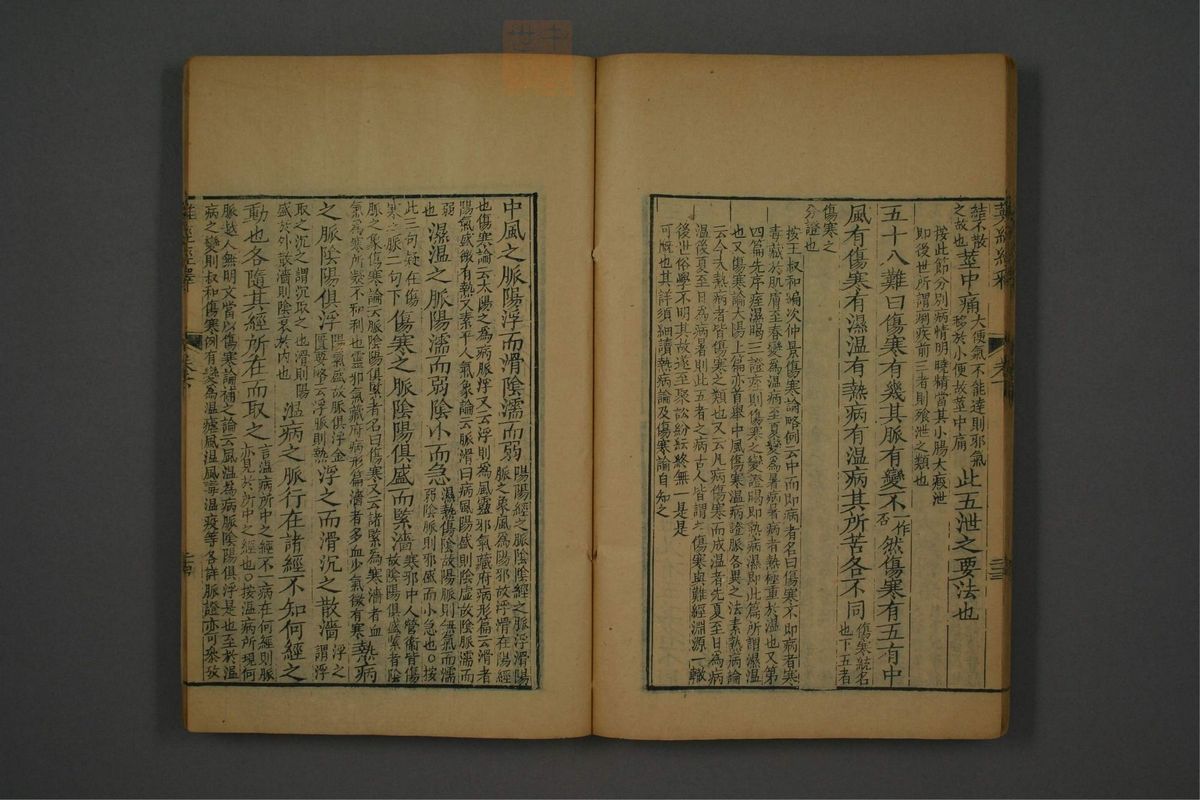 結不散
之故也莖中痛大便氣不能達則邪氣移於小便故莖中痛此五泄之要法也
按此節分別病情明曉精當其小腸大瘕泄
即後世所謂痢疾前三者則飧泄之類也
五十八難曰傷寒有幾其脈有變不一作否然傷寒有五有中
風有傷寒有濕溫有熱病有溫病其所苦各不同傷寒統名也下五者
傷寒之
分證也
按王叔和編次仲景傷寒論略例云中而即病者名曰傷寒不即病者寒
毒藏於肌膚至春變為溫病至夏變為暑病暑病者熱極重於溫也又第
四篇先序痓濕暍三證亦則傷寒之變證暍即熱病濕即此篇所謂濕溫
也又傷寒論太陽上篇亦首舉中風傷寒溫病證脈各異之法素熱病論
云今夫熱病者皆傷寒之類也又云凡病傷寒而成溫者先夏至日為病
溫後夏至日為病暑則此五者之病古人皆謂之傷寒與難經淵源一轍
後世俗學不明其故遂至聚訟紛紜終無一是是
可慨也其詳須細讀熱病論及傷寒論自知之
中風之脈陽浮而滑陰濡而弱陽陽經之脈陰陰經之脈浮滑陽脈之象風為陽邪故浮滑在陽經
也傷寒論云太陽之為病脈浮又云浮則為風靈邪氣藏府病形篇云滑者
陽氣盛微有熱又素平人氣象論云脈滑曰病風陽盛則陰虛故陰濡而
弱也濕溫之脈陽濡而弱陰小而急濕熱傷陰故陽脈則無氣而濡弱陰脈則邪盛而小急也○按
此三句疑在傷寒之脈二句下傷寒之脈陰陽俱盛而緊濇寒邪中人營衛皆傷故陰陽俱盛緊者陰
脈之象傷寒論云脈陰陽俱緊者名曰傷寒又云諸緊為寒濇者血
氣為寒所凝不和利也靈邪氣藏府病形篇濇者多血少氣微有寒熱病
之脈陰陽俱浮陽氣盛故脈俱浮金匱要略云浮脈則熱浮之而滑沉之散濇浮之謂浮
取之沉之謂沉取之也滑則陽盛於外散濇則陰衰於內也溫病之脈行在諸經不知何經之
動也各隨其經所在而取之言溫病所中之經不一病在何經則脈亦見於所中之經也○按溫病所現何
脈越人無明文當以傷寒論補之論云風溫為病脈陰陽俱浮是也至於溫
病之變則叔和傷寒例有變為溫瘧風溫風毒溫疫等各詳脈證亦可參攷
難經經釋
卷下